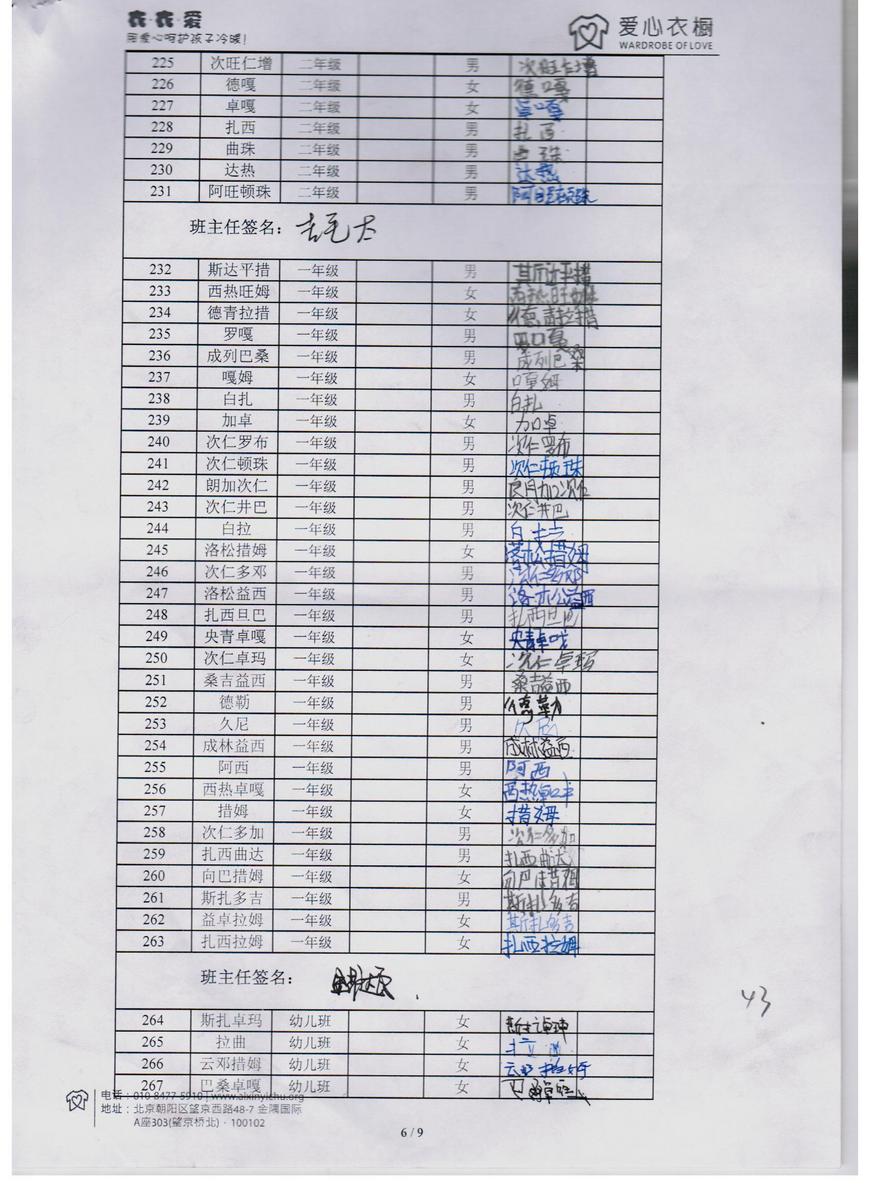 衣·衣·爱
用爱心呵护孩子冷暖!
爱心衣橱
WARDROBE OF LOVE
225 次旺仁增 二年级 男 次旺仁增
226 德嘎 二年级 女 德嘎
227 卓嘎 二年级 女 卓嘎
228 扎西 二年级 男 扎西
229 曲珠 二年级 男 曲珠
230 达热 二年级 男 达热
231 阿旺顿珠 二年级 男 阿旺顿珠
班主任签名：
232 斯达平措 一年级 男 其斤达平措
233 西热旺姆 一年级 女 西热旺姆
234 德青拉措 一年级 女 德青拉措
235 罗嘎 一年级 男 罗嘎
236 成列巴桑 一年级 男 成列巴桑
237 嘎姆 一年级 女 嘎姆
238 白扎 一年级 男 白扎
239 加卓 一年级 女 加卓
240 次仁罗布 一年级 男 次仁罗布
241 次仁顿珠 一年级 男 次仁顿珠
242 朗加次仁 一年级 男 朗加次仁
243 次仁井巴 一年级 男 次仁井巴
244 白拉 一年级 男 白
245 洛松措姆 一年级 女 洛松措姆
246 次仁多邓 一年级 男 次仁多邓
247 洛松益西 一年级 男 洛松益西
248 扎西旦巴 一年级 男 扎西旦巴
249 央青卓嘎 一年级 女 央青卓
250 次仁卓玛 一年级 女 次仁卓玛
251 桑吉益西 一年级 男 桑吉益西
252 德勒 一年级 男 德勒
253 久尼 一年级 男 久尼
254 成林益西 一年级 男 成林益西
255 阿西 一年级 男 阿西
256 西热卓嘎 一年级 女 西热卓
257 措姆 一年级 女 措姆
258 次仁多加 一年级 男 次仁多加
259 扎西曲达 一年级 男 扎西曲达
260 向巴措姆 一年级 女 向巴措姆
261 斯扎多吉 一年级 男 斯扎多吉
262 益卓拉姆 一年级 女 斯扎多吉
263 扎西拉姆 一年级 女 扎西拉姆
班主任签名：
43
264 斯扎卓玛 幼儿班 女
265 拉曲 幼儿班 女
266 云邓措姆 幼儿班 女
267 巴桑卓嘎 幼儿班 女
电话：010 8477 5910 | www.aixinyichu.org
地址：北京朝阳区望京西路48-7 金隅国际
A座303(望京桥北)·100102
6 / 9